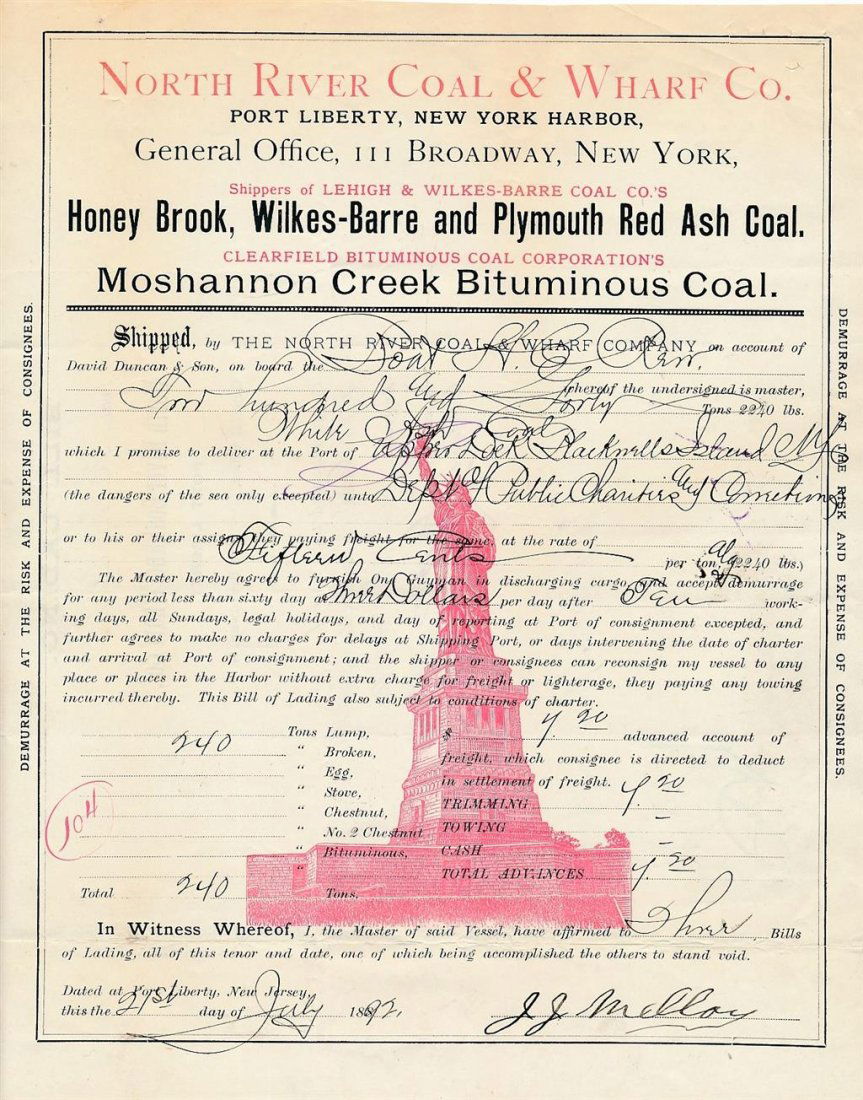 NORTH RIVER COAL & WHARF CO.
PORT LIBERTY, NEW YORK HARBOR,
General Office, 111 BROADWAY, NEW YORK,
Shippers of LEHIGH & WILKES-BARRE COAL CO.'S
Honey Brook, Wilkes-Barre and Plymouth Red Ash Coal.
CLEARFIELD BITUMINOUS COAL CORPORATION'S
Moshannon Creek Bituminous Coal.
DEMURRAGE AT THE RISK AND EXPENSE OF CONSIGNEES.
DEMURRAGE AT THE RISK AND EXPENSE OF CONSIGNEES.
Shipped, by THE NORTH RIVER COAL & WHARF COMPANY on account of
David Duncan & Son, on board the Boat H. C.
whereof the undersigned is master,
Two hundred and Forty Tons 2240 lbs.
White Ash Coal
which I promise to deliver at the Port of Dock Blackwells Island N.Y.
(the dangers of the sea only excepted) unto Dept of Public Charities and Corrections
or to his or their assigns, they paying freight for the same, at the rate of
Fifteen Cents per ton, (2240 lbs.)
The Master hereby agrees to furnish One Guyman in discharging cargo, and accept demurrage
for any period less than sixty day at Three Dollars per day after Ten work-
ing days, all Sundays, legal holidays, and day of reporting at Port of consignment excepted, and
further agrees to make no charges for delays at Shipping Port, or days intervening the date of charter
and arrival at Port of consignment; and the shipper or consignees can reconsign my vessel to any
place or places in the Harbor without extra charge for freight or lighterage, they paying any towing
incurred thereby. This Bill of Lading also subject to conditions of charter.
240 Tons Lump, $ 7.20 advanced account of
" Broken, freight, which consignee is directed to deduct
" Egg, in settlement of freight.
" Stove, TRIMMING 7.20
" Chestnut, TOWING –
104
" No. 2 Chestnut CASH –
" Bituminous, TOTAL ADVANCES 7.20
"
Total 240 Tons.
In Witness Whereof, I, the Master of said Vessel, have affirmed to Three Bills
of Lading, all of this tenor and date, one of which being accomplished the others to stand void.
Dated at Port Liberty, New Jersey,
this the 21st day of July 1892.
J. J. Melloy